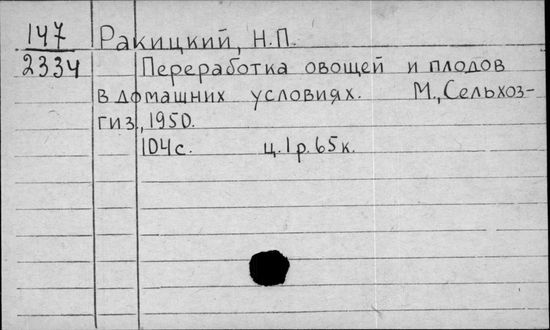 147
2334
Ракицкий, Н.П.
Переработка овощей и плодов
в домашних условиях. М., Сельхоз-
гиз, 1950.
104с. ц. 1 р. 65 к.